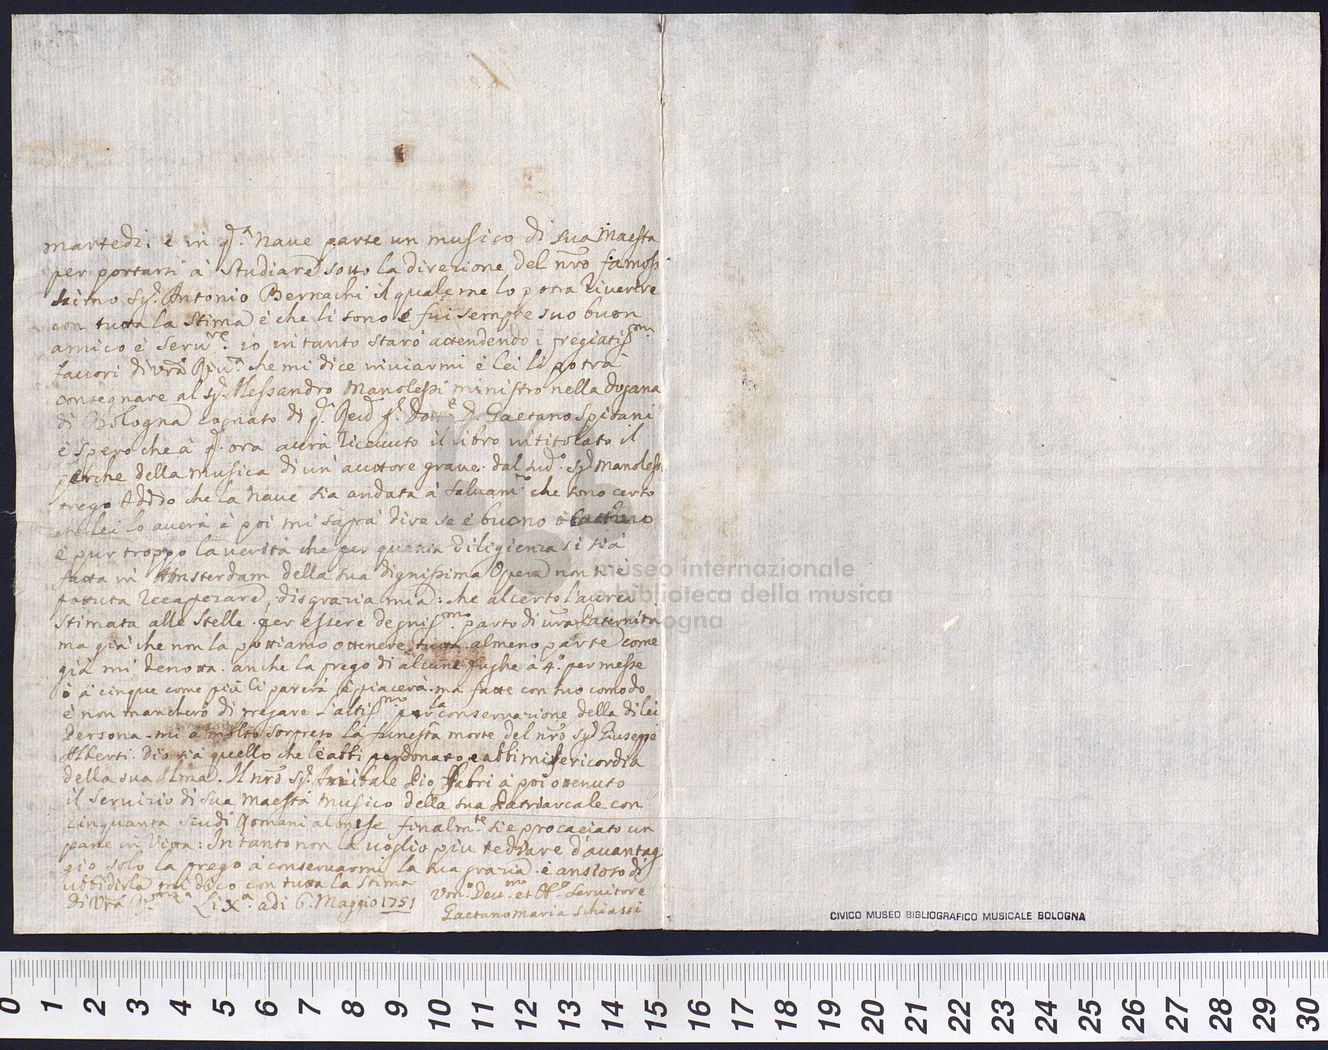 martedi: è in q.ª Nave parte un musico di Sua Maestà
per portarsi à Studiare sotto la direzione del nrô famosi
ssimo Sigr. Antonio Bernachi il quale me lo potrà riverire
con tutta la Stima è che li sono è fui sempre suo buon
amico è Serv.re io intanto starò attendendo i pregiatis.mi
favori di vrâ che mi dice inviarmi è lei li potrà
consegnare al Sigr Alessandro Manolessi ministro nella Dogana
di Bologna cognato di q.º Gaetano Spisani
è Spero che à q. ora averà ricevuto il libro intitolato il
perche della musica di un'auttore grave dal sud.º Sigr Manolessi
prego Iddio che la Nave sia andata à Salvam.to che sono certo
che lei lo averà è poi mi saprà dire se è buono ò
è pur troppo la verità che per quanta diligienza si sia
fatta in Amsterdam della sua dignissima Opera non si è
potuta recaperare, disgrazia mia: che al certo l'averei
Stimata alle Stelle per essere degnis.mo parto di vrâ Paternità
ma già che non la possiamo ottenere tutta almeno parte come
già mi denotta anche la prego di alcune fughe à 4.º per messe
ò à cinque come più li parerà è piacerà ma fatte con suo comodo
è non mancherò di pregare l'altis.mo per la conservazione della di lei
Persona mi à molto sorpreso la funesta morte del nrô Sigr Giuseppe
Alberti Dio sia quello che l'abbi perdonato e abbi misericordia
della sua Alma. Il nrô Sigr. Anibale Pio Fabri à poi ottenuto
il Servizio di Sua Maestà Musico della sua Patriarcale con
cinquanta Scudi Romani al mese finalm.te s'è procaciato un
pane in Vitta: Intanto non la voglio più tediare d'avantag
gio solo la prego à conservarmi la sua grazia è ansioso di
ubbidirla mi dico con tutta la Stima
di Vrâ
Lix.ª adi 6. Maggio 1751
Um.º Dev.mo et Ob.º Servitore
Gaetano Maria Schiassi
museo internazionale
e biblioteca della musica
di bologna
CIVICO MUSEO BIBLIOGRAFICO MUSICALE BOLOGNA
0 1 2 3 4 5 6 7 8 9 10 11 12 13 14 15 16 17 18 19 20 21 22 23 24 25 26 27 28 29 30